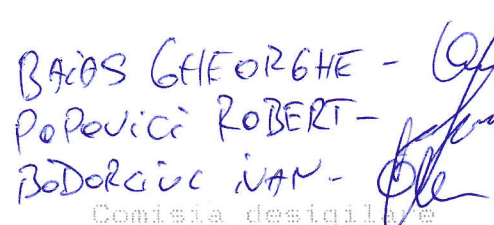 BAIAS GHEORGHE -
POPOVICI ROBERT -
BODORCIUC IVAN -
Comisia desigilare